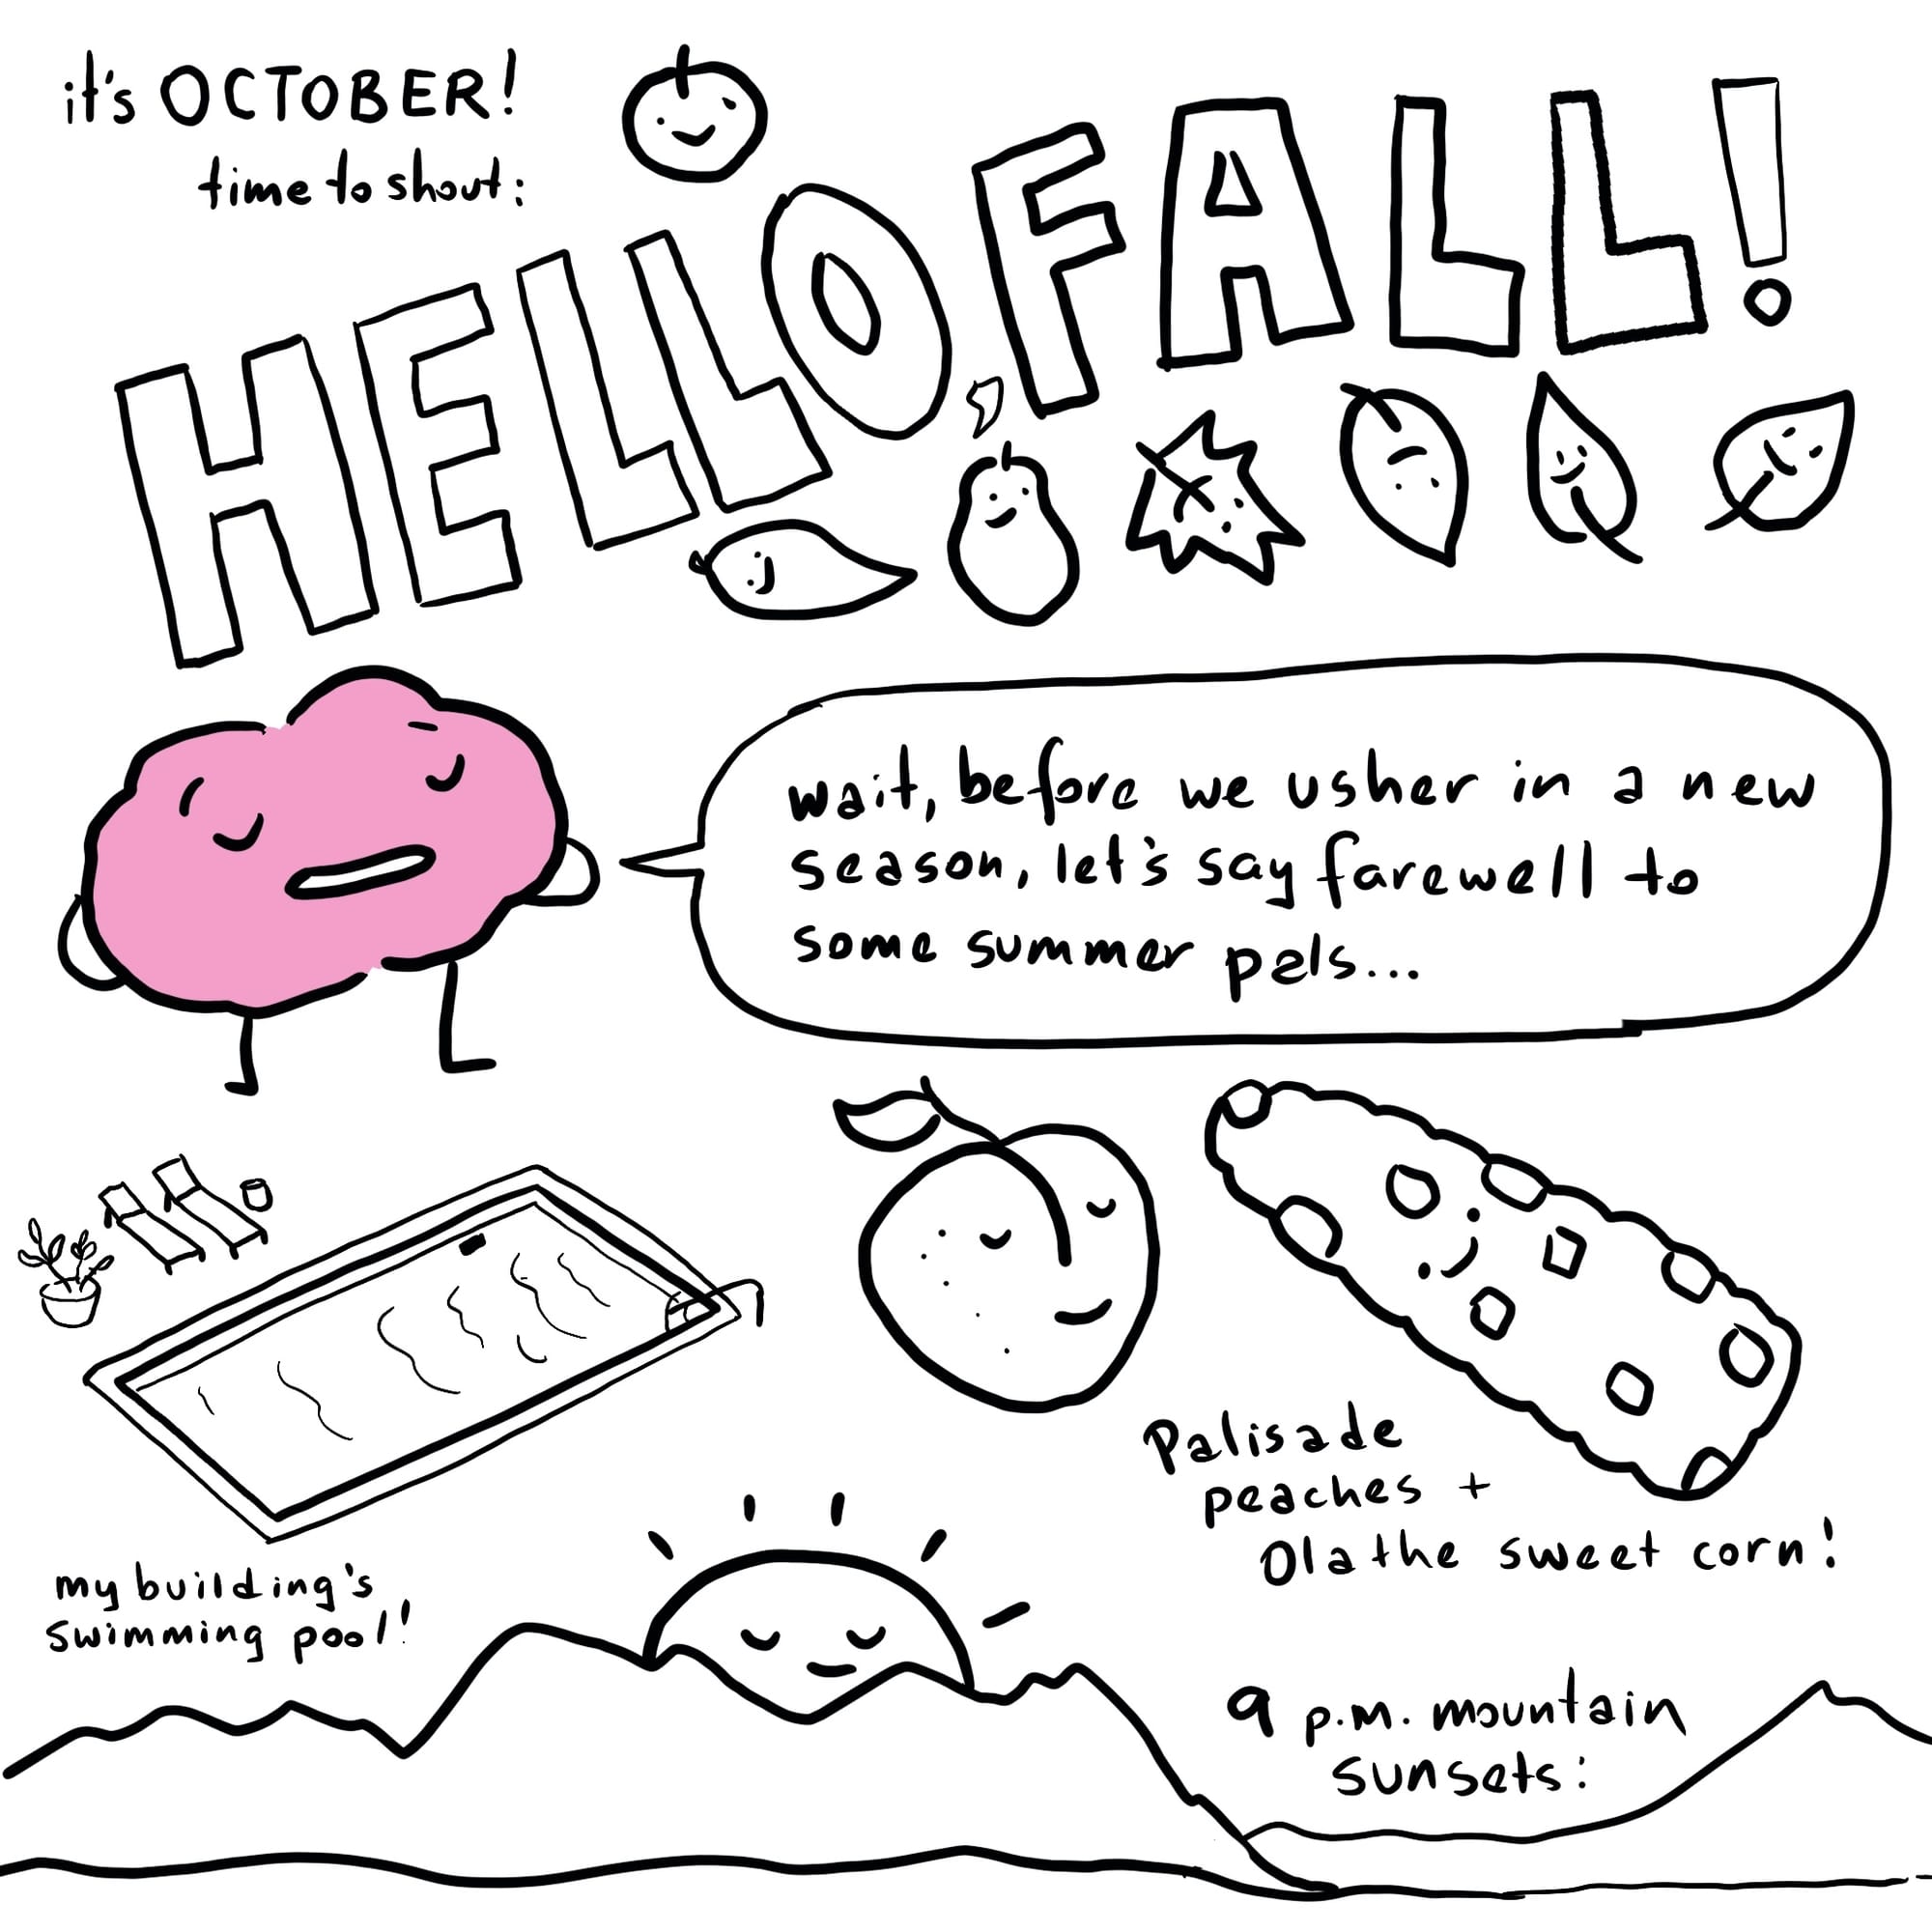 it's OCTOBER!
time to shout:
HELLO FALL!
wait, before we usher in a new
season, let's say farewell to
some summer pals...
Palisade
peaches +
Olathe sweet corn!
my building's
swimming pool!
9 p.m. mountain
sunsets: